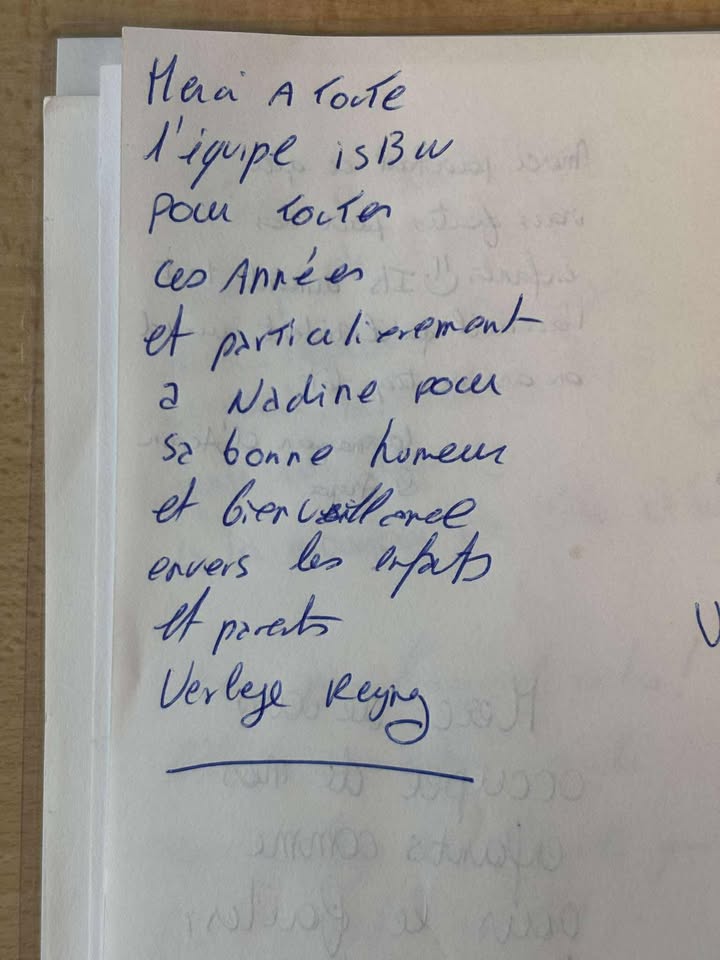 Merci A toute
l'équipe isBW
pour toutes
ces Années
et particulièrement
a Nadine pour
sa bonne humeur
et bienveillance
envers les enfants
et parents